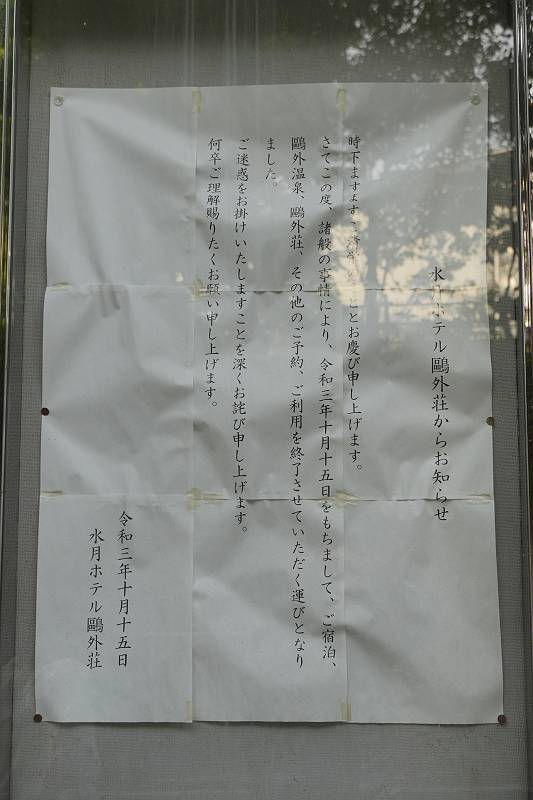 水月ホテル鷗外荘からお知らせ
時下ますますご清栄のこととお慶び申し上げます。
さてこの度、諸般の事情により、令和三年十月十五日をもちまして、ご宿泊、
鷗外温泉、鷗外荘、その他のご予約、ご利用を終了させていただく運びとなり
ました。
ご迷惑をお掛けいたしますことを深くお詫び申し上げます。
何卒ご理解賜りたくお願い申し上げます。
令和三年十月十五日
水月ホテル鷗外荘